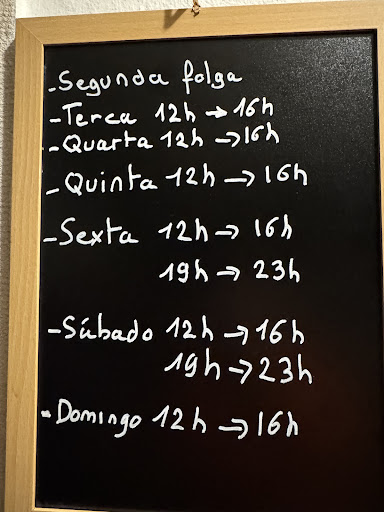 -Segunda folga
-Terca 12h → 16h
-Quarta 12h → 16h
-Quinta 12h → 16h
-Sexta 12h → 16h
19h → 23h
-Sábado 12h → 16h
19h → 23h
-Domingo 12h → 16h